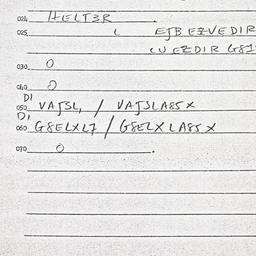 020 HELT3R
025 L EJB EZVEDIR
LU EZDIR G8J
030 0
040 0
DI
050 VAJSL, / VAJSLA85X
DI
060 G8ELXL7 / G8ELXLA85X
070 0